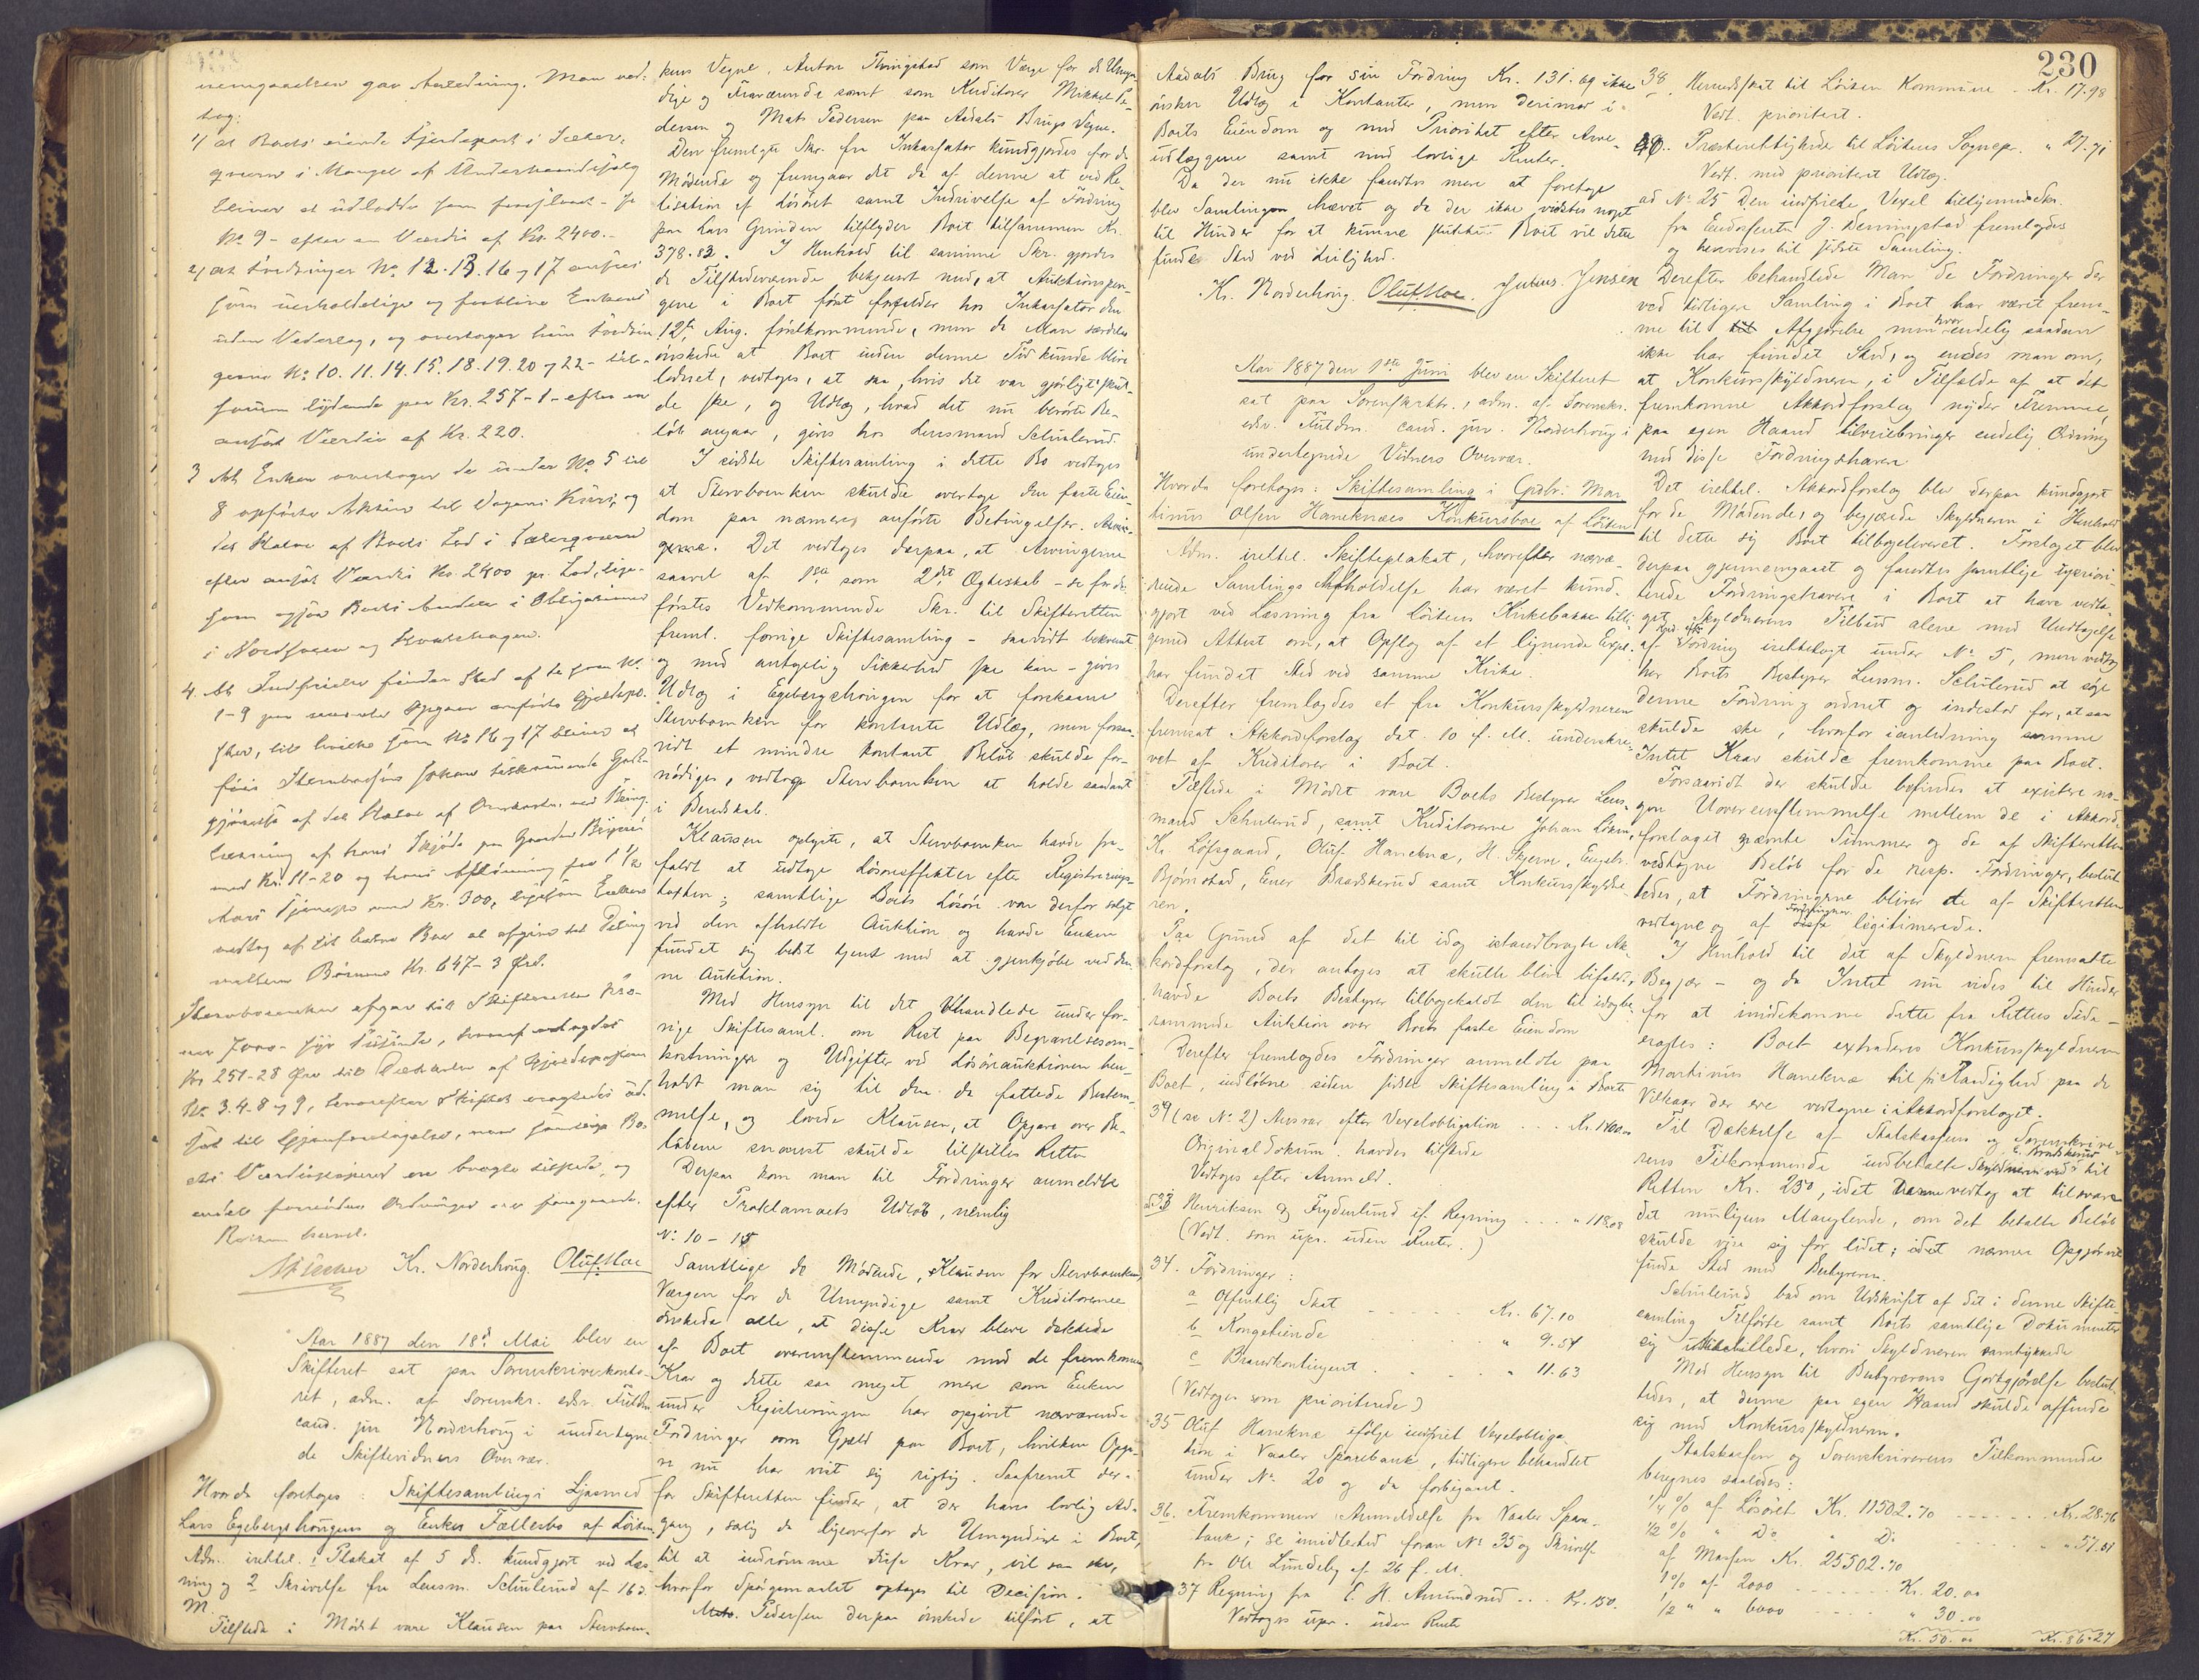 nemgaaelsen gav Anledning. Man ved-
tog:
1/ at Boets eiende Fjerdepart i Sæter-
qværn i Mangel af Underhaandssalg
bliver at udlodde som forestaaet - se
No 9 - efter en Værdi af Kr. 2400.-
2/ at Fordringer No 12. 13. 16 og 17 ansees
som uerholdelige og forblive Enkens
uden Vederlag, og overtager hun Fordrin-
gerne No 10. 11. 14. 15. 18. 19. 20 og 22 - til-
sammen lydende paa Kr. 257-1 - efter en
anført Værdi af Kr. 220.
3 At Enken overtager de under No 5 til
8 opførte Aktier til Dagens Kurs, og
det Halve af Boets Lod i Sæterqværn
efter anført Værdi Kr. 2400 pr. Lod, lige-
som ogsaa Boets Andele i Obligationer
i Nordhagen og
4. At Indfrielse finder Sted af de fra No
1-9 paa Opgave anførte Gjældspo-
ster, til hvilke som No 16 og 17 bliver at
føie Stervbofuens tilkommende Godt-
gjørelse af det Halve af Omkostn. ved Thing-
læsning af hans Skjøde paa Gaarden
med Kr. 11-20 og hans Aflønning for 1 1/2
Aars Tjeneste med Kr. 300, ligesom Enken
vedtog at til bedre Boet at afgive
mellem Børnene Kr. 647-3 Øre.
Stervboenken afgav til Skifteretten Kro-
ner 7000- syv Tusinde, hvoraf udtoges
Kr 251-28 Øre til Dækkelse af Gjældsposterne
No 3. 4. 8 og 9, hvorefter Skiftet eragtedes ud-
sat til Gjenforetagelse, naar samtlige Bo-
ets Værdipapirer ere bragte tilstede, og
endelt fornøden Ordninger ere foregaaende.
Retten hævet.
Kr. Norderhoug. Oluf Moe
Aar 1887 den 18d Mai blev en
Skifteret sat paa Sorenskriverkonto-
ret, adm. af Sorenskr. edsv. Fuldm.
cand. jur Norderhoug i undertegne-
de Skiftevidners Overvær.
Hvorda foretoges: Skiftesamling i Ljosmed
Lars Egebergshougens og Enkes Fællesbo af Løiten
Adm. irettel. 1 Plakat af 5 ds. kundgjort ved Læs-
ning og 2 Skrivelse fra Lensm. Schulerud af 16 d.
M.
Tilstede i Mødet vare Klausen paa Stervboen-
kens Vegne, Anton Thingstad som Værge for de Umyn-
dige og Fraværende samt som Kreditorer Mikkel Pe-
dersen og Mats Pedersen paa Aadals Brugs Vegne.
Den fremlagte Skr. fra Inkassator kundgjordes for de
Mødende og fremgaar det da af denne at ved Re-
lisation af Løsøret samt Indrivelse af Fordring
paa Lars Grinden tilflyder Boet tilsammen Kr.
378.83. I Henhold til samme Skr. gjordes
de Tilstedeværende bekjendt med, at Auktionspen-
gene i Boet først forfalder hos Inkassator den
12te Aug. førstkommende, men da Man særdeles
ønskede at Boet inden denne Tid kunde blive
lodnet, vedtoges, at saa, hvis det var gjørligt skul-
de ske, og Udlæg, hvad det nu berørte Be-
løb angaar, gives hos Lensmand Schulerud.
I sidste Skiftesamling i dette Bo vedtoges
at Stervboenken skulde overtage den faste Eien-
dom paa nærmere anførte Betingelser.
Det vedtoges derpaa, at Arvingerne
saavel af 1ste som 2det Ægteskab - se for de
førstes Vedkommende Skr. til Skifteretten
freml. forrige Skiftesamling - saavidt bekvemt
og med antagelig Sikkerhed ske kan - gives
Udlæg i Egebergshougen for at forskaane
Stervboenken for kontante Udlæg, men forsaa-
vidt et mindre kontant Beløb skulde for-
nødiges, vedtog Stervboenken at holde saadant
i Beredskab.
Klausen oplyste, at Stervboenken havde fra-
faldt at udtage Løsøreffekter efter Registrerings-
taxten; samtlige Boets Løsøre var derfor solgt
ved den afholdte Auktion og havde Enken
fundet sig bedst tjent med at gjenkjøbe ved den-
ne Auktion.
Med Hensyn til det behandlede under for-
rige Skiftesaml. om Rest paa Begravelsesom-
kostninger og Udgifter ved Løsøreauktionen hen-
holdt man sig til den da fattede Bestem-
melse, og lovede Klausen, at Opgave over Be-
løbene snarest skulde tilstilles Retten
Derpaa kom man til Fordringer anmeldte
efter Proklamaets Udløb, nemlig
No 10 - 15
Samtlige de Mødende, Klausen for Stervboenken,
Værgen for de Umyndige samt Kreditorerne
ønskede alle, at disse Krav bleve dækkede
af Boet overensstemmende med de fremkomne
Krav og dette saa meget mere som Enken
under Registreringen har opgivet nærværende
Fordringer som Gjæld paa Boet, hvilken Opga-
ve nu har vist sig rigtig. Saafremt der-
for Skifteretten finder, at der haves lovlig Ad-
gang, særlig da ligeoverfor de Umyndige i Boet,
til at indrømme disse Krav, vil saa ske,
hvorfor Spørgsmaalet optages til Decision.
Mats. Pedersen derpaa ønskede tilført, at
230
Aadals Brug for sin Fordring Kr. 131.69 ikke
ønsker Udlæg i Kontanter, men derimod i
Boets Eiendom og med Prioritet efter Arve-
udlæggene samt med lovlige Renter.
Da der nu ikke fandtes mere at foretage
blev Samlingen hævet og da der ikke vidstes noget
til Hinder for at kunne slutte Boet vil dette
finde Sted ved Leilighed.
Kr. Norderhoug. Oluf Moe. Julius Jensen
Aar 1887 den 1ste Juni blev en Skifteret
sat paa Sorenskrktr., adm. af Sorenskr.
edsv. Fuldm. cand. jur. Norderhoug i
undertegnede Vidners Overvær.
Hvorda foretoges: Skiftesamling i Gaardbr. Mar-
tinus Olsen Haneknæs Konkursboe af Løiten
Adm. irettel. Skifteplakat, hvorefter nærvæ-
rende Samlings Afholdelse har været kund-
gjort ved Læsning fra Løitens Kirkebakke tilli-
gemed Attest om, at Opslag af et lignende Expl.
har fundet Sted ved samme Kirke.
Derefter fremlagdes et fra Konkursskyldneren
fremsat Akkordforslag dat. 10 f. M. underskre-
vet af Kreditorer i Boet.
Tilstede i Mødet vare Boets Bestyrer Lens-
mand Schulerud, samt Kreditorerne Johan Løken,
Kr. Løfsgaard, Oluf Haneknæ, H. Skjerve, Engebr.
Bjørnstad, Ener Bradskerud samt Konkursskyldne-
ren.
Paa Grund af det til idag istandbragte Ak-
kordforslag, der antages at skulle blive bifaldt,
havde Boets Bestyrer tilbagekaldt den til idag be-
rammede Auktion over Boets faste Eiendom
Derefter fremlagdes Fordringer anmeldte paa
Boet, indløbne siden sidste Skiftesamling i Boet:
39 (se No 2) Ansvar efter Vexelobligation . . . Kr. 1400.00
Originaldokum. havdes tilstede
Vedtoges efter Anmeld.
ad 33 Henriksen & Fryderlund ef. Regning . . . " 118.08
(Vedt. som upr. uden Renter.)
34. Fordringer:
a Offentlig Skat - - - - - Kr. 67.10
b Kongetiende . . . . " 9.54
c Brandkontingent. . . . . " 11.63
(Vedtoges som prioriterede)
35 Oluf Haneknæ ifølge indfriet Vexelobliga-
tion i Vaaler Sparebank, tidligere behandlet
under No. 20 og da forbigaaet.
36. Fremkommen Anmeldelse fra Vaaler Spare-
bank; se imidlertid foran No 35 og Skrivelse
fra Ole Lundeby af 26 f. M.
37 Regning fra E. H. Amundrud . . . Kr. 150.
Vedtoges upr. uden Rente
38. Herredsskat til Løiten Kommune - Kr. 17.98
Vedt. prioritert.
40. Præsterettighede til Løitens Sognepr. " 27.71
Vedt. med prioritert Udlæg.
ad No 25 Den indfriede Vexel tilligemed Skr.
fra Endossenten J. Benningstad fremlagdes
og henvises til sidste Samling.
Derefter behandlede Man de Fordringer der
ved tidligere Samling i Boet har været frem-
me til til Afgjørelse men hvor endelig saadan
ikke har fundet Sted, og enedes man om,
at Konkursskyldneren, i Tilfælde af at det
fremkomne Akkordforslag nyder Fremme,
paa egen Haand tilveiebringer endelig Ordning
med disse Fordringshavere
Det irettel. Akkordforslag blev derpaa kundgjort
for de Mødende, og begjærede Skyldneren i Henhold
til dette sig Boet tilbageleveret. Forslaget blev
derpaa gjennemgaaet og fandtes samtlige upriori-
terede Fordringshavere i Boet at have vedta-
get Skyldnerens Tilbud alene med Undtagelse
af Fordring irettelagt under No 5, men vedtog
her Boets Bestyrer Lensm. Schulerud at søge
denne Fordring ordnet og indestod for, at saa
skulde ske, hvorfor i anledning samme
Intet Krav skulde fremkomme paa Boet.
Forsaavidt der skulde befindes at existere no-
gen Uoverensstemmelse mellem de i Akkord-
forslaget nævnte Summer og de af Skifteretten
vedtagne Beløb for de resp. Fordringer, beslut-
tedes, at Fordringerne bliver de af Skifteretten
vedtagne og af Fordringshaver disse legitimerede.
I Henhold til det af Skyldneren fremsatte
Begjær - og da Intet nu vides til Hinder
for at imødekomme dette fra Rettens Side -
eragtes: Boet extraderes Konkursskyldneren
Martinus Haneknæ til fri Raadighed paa de
Vilkaar der ere vedtagne i Akkordforslaget.
Til Dækkelse af Statskassens og Sorenskrive-
rens Tilkommende indbetalte Skyldneren ved E. Bradskerud til
Retten Kr. 250, idet Denne vedtog at tilsvare
det muligens Manglende, om det betalte Beløb
skulde vise sig for lidet; idet nærmere Opgjør vil
finde Sted med Bestyreren.
Schulerud bad om Udskrift af det i denne Skifte-
samling Tilførte samt Boets samtlige Dokumenter
sig tilstillede, hvori Skyldneren samtykkede
Med Hensyn til Bestyrerens Godtgjørelse beslut-
tedes, at denne paa egen Haand skulde affinde
sig med Konkursskyldneren.
Statskassen og Sorenskriverens Tilkommende
beregnes saaledes:
1/4 % af Løsøret Kr. 11502.70 - - - - - Kr. 28.76
1/2 % " Do " Do . . . . . " 57.51
af Massen Kr. 25502.70
1 % af 2000 - - - - Kr. 20.00
1/2 " " 6000 - - - - " 30.00
Kr. 50.00 Kr. 86.27